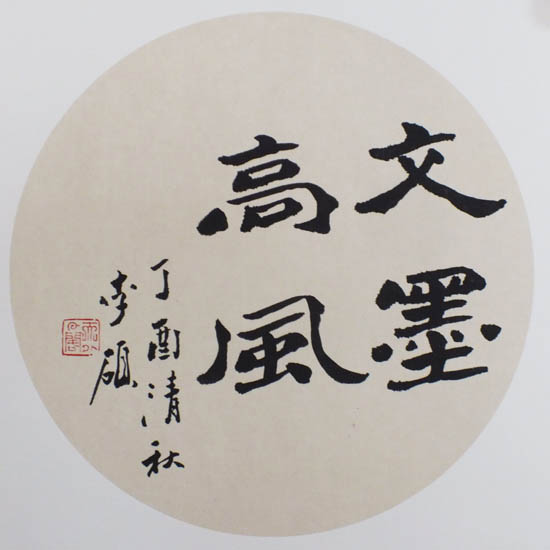 文墨
高風
丁酉清秋
李碩